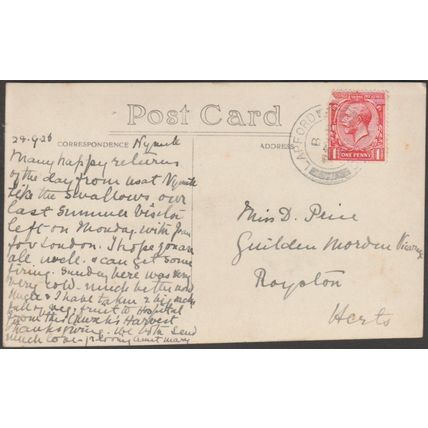 Post Card
CORRESPONDENCE
ADDRESS
LAPFORD
B
ONE PENNY
24.9.26 Nymet
Many happy returns
of the day from us at Nymet
Like the swallows our
last Summer Visitor
left on Monday with
for London. I hope you are
all well & can get some
firing. Sunday here was very
very cold. much better now
& I have taken 2 big
of veg, fruit to Hospital
from this Church's Harvest
Thanksgiving. We both send
much love yr loving aunt Mary
Miss D. Price
Guilden Morden Vicarage
Royston
Herts